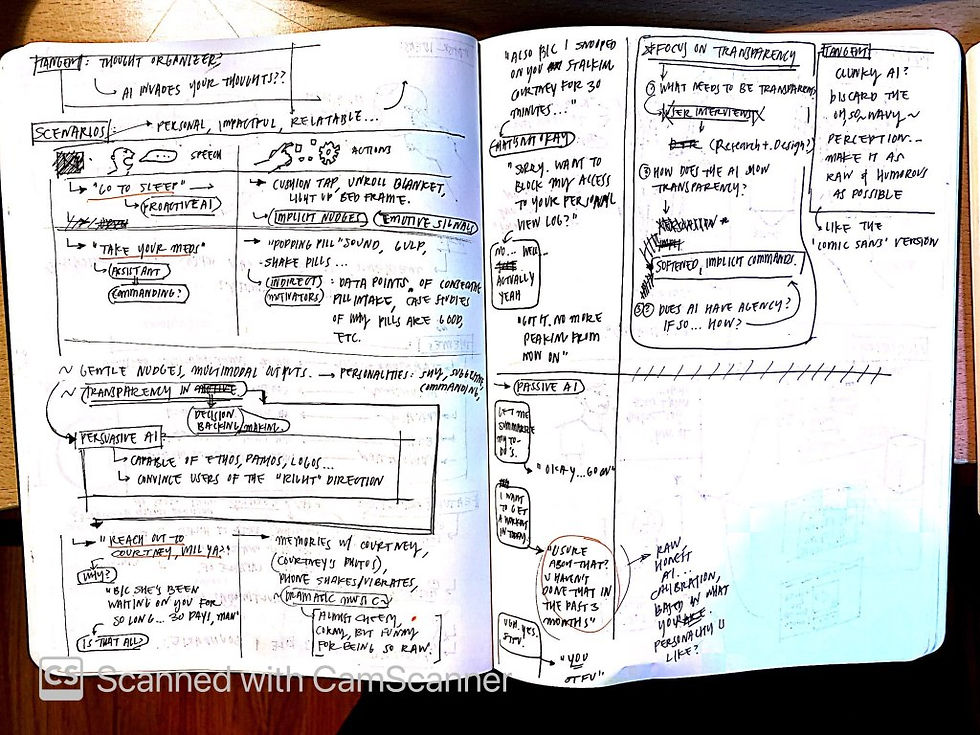 TANGENT: THOUGHT ORGANIZER?
AI INVADES YOUR THOUGHTS??
SCENARIOS:
PERSONAL, IMPACTFUL, RELATABLE...
SPEECH
ACTIONS
"GO TO SLEEP"
PROACTIVE AI
CUSHION TAP, UNROLL BLANKET,
LIGHT UP BED FRAME.
IMPLICIT NUDGES EMOTIVE SIGNALS
"TAKE YOUR MEDS"
ASSISTANT
COMMANDING?
"POPPING PILL" SOUND, GULP,
SHAKE PILLS...
INDIRECT MOTIVATORS: DATA POINTS OF CONSECUTIVE
PILL INTAKE, CASE STUDIES
OF WHY PILLS ARE GOOD,
ETC.
~ GENTLE NUDGES, MULTIMODAL OUTPUTS. → PERSONALITIES: SHY, SUGGESTIVE,
COMMANDING,
~ TRANSPARENCY IN
DECISION
BACKING/MAKING.
PERSUASIVE AI
CAPABLE OF ETHOS, PATHOS, LOGOS...
CONVINCE USERS OF THE "RIGHT" DIRECTION
"REACH OUT TO
COURTNEY, WILL YA?"
WHY?
"B/C SHE'S BEEN
WAITING ON YOU FOR
SO LONG... 30 DAYS, MAN"
IS THAT ALL?
MEMORIES W/ COURTNEY,
(COURTNEY'S PHOTOS),
PHONE SHAKES/VIBRATES,
~ DRAMATIC MUSIC
ALMOST CHEESY,
CORNY, BUT FUNNY
FOR BEING SO RAW.
"ALSO B/C I SNOOPED
ON YOU STALKING
COURTNEY FOR 30
MINUTES..."
THAT'S NOT OKAY
"SORRY. WANT TO
BLOCK MY ACCESS
TO YOUR PERSONAL
VIEW LOG?"
NO... WELL...
ACTUALLY
YEAH
"GOT IT. NO MORE
PEAKING FROM
NOW ON"
PASSIVE AI
LET ME
SUMMARISE
MY TO-
DO'S.
"OKAY...GO ON"
I WANT
TO GET
A WORKOUT
IN TODAY.
"U SURE
ABOUT THAT?
U HAVEN'T
DONE THAT IN
THE PAST 3
MONTHS"
UGH. YES.
STFU.
"YOU
STFU"
RAW,
HONEST
AI...
CALIBRATION,
BASED IN WHAT
YOUR
PERSONALITY IS
LIKE?
* FOCUS ON TRANSPARENCY
① WHAT NEEDS TO BE TRANSPARENT?
USER INTERVIEWS
(RESEARCH + DESIGN?)
② HOW DOES THE AI SHOW
TRANSPARENCY?
SOFTENED, IMPLICIT COMMANDS.
DOES AI HAVE AGENCY?
IF SO... HOW?
TANGENT
CLUNKY AI?
DISCARD THE
OH SO WAVY ~
PERCEPTION...
MAKE IT AS
RAW & HUMOROUS
AS POSSIBLE
LIKE THE
'COMIC SANS' VERSION
CS Scanned with CamScanner